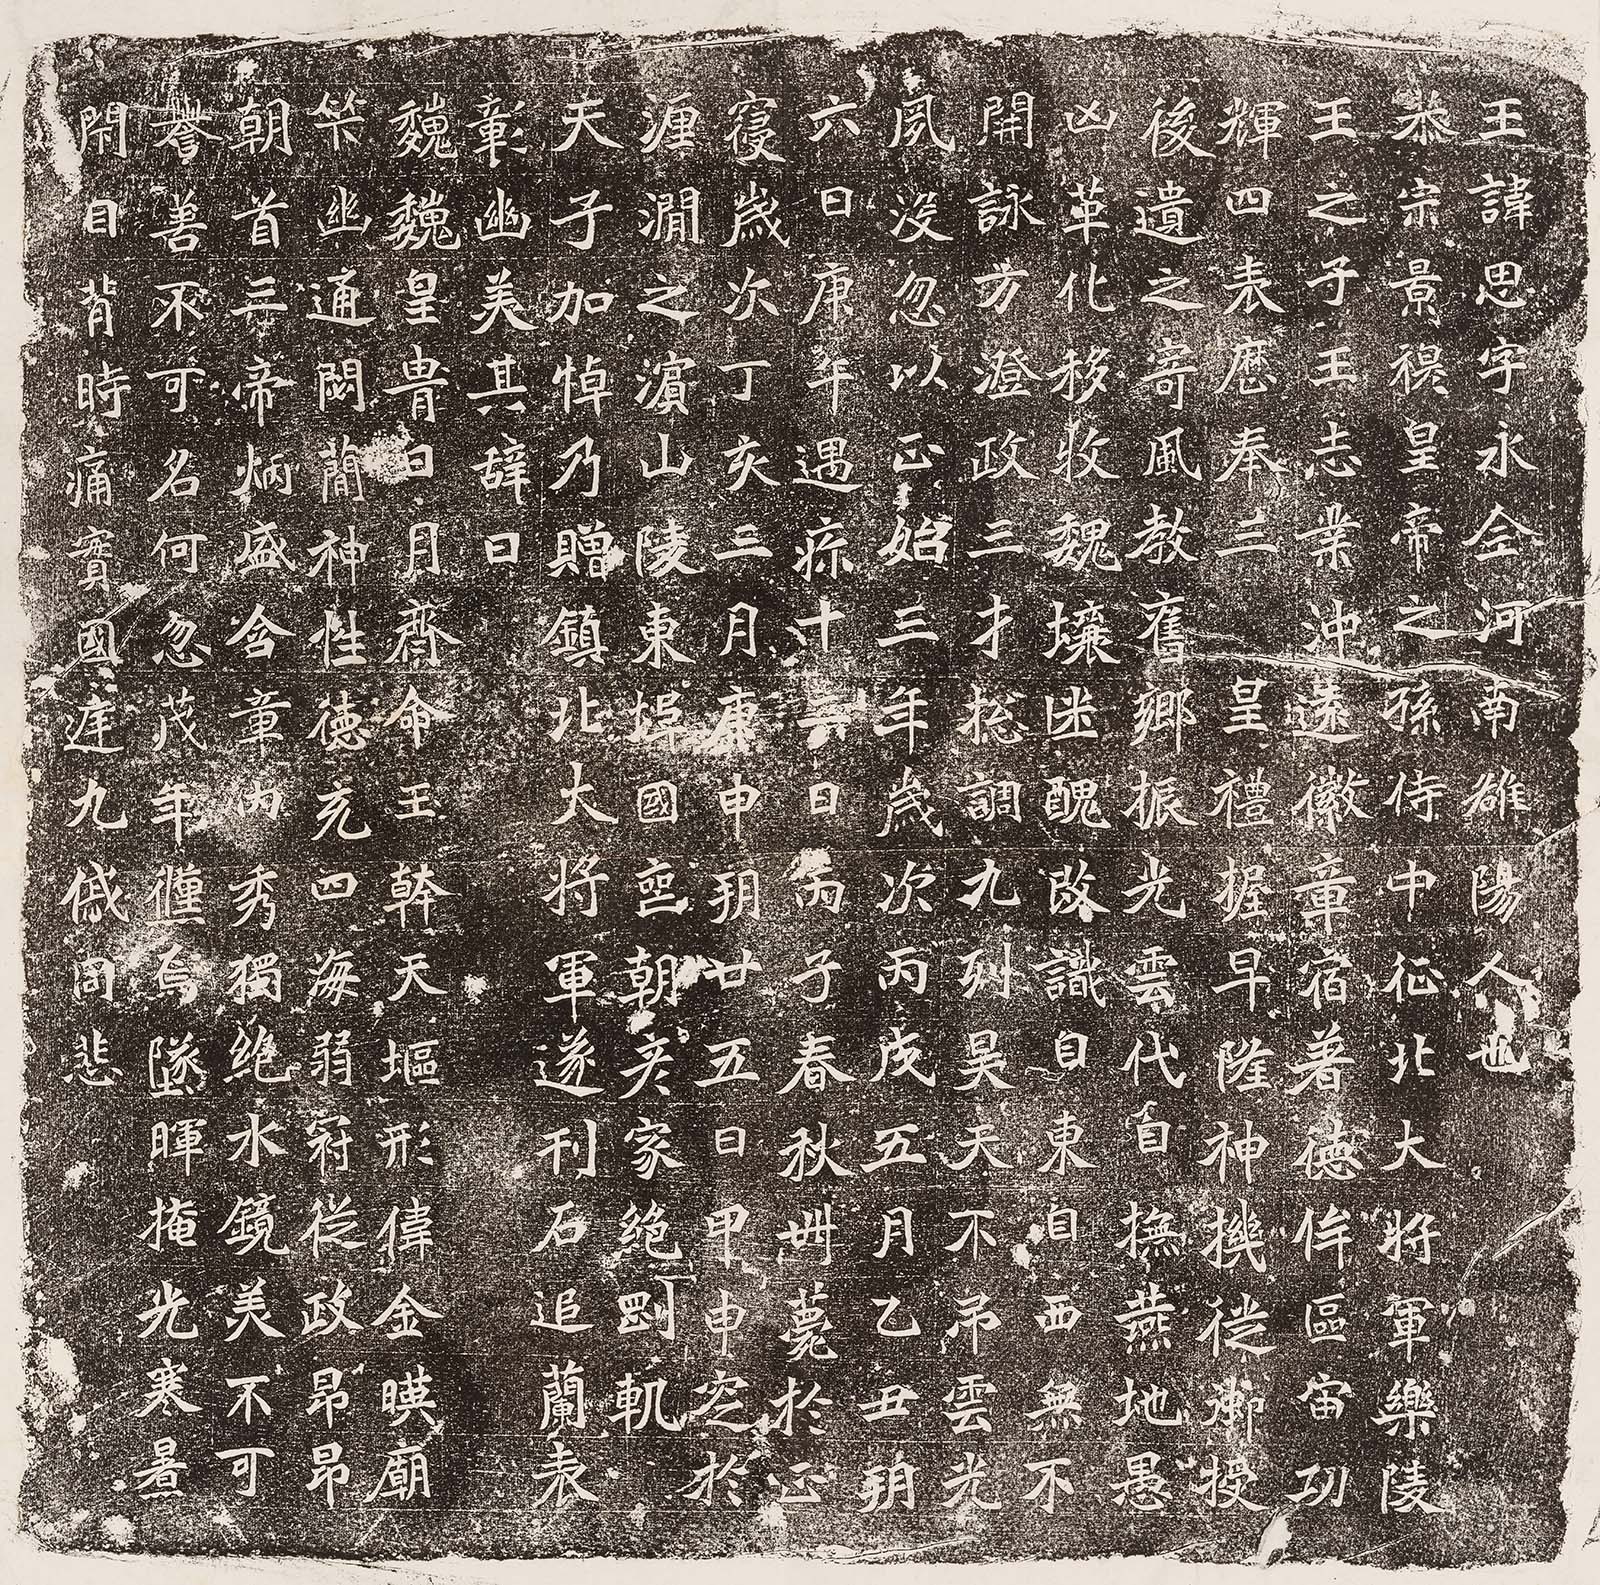 王諱思字永全河南雒陽人也
恭宗景穆皇帝之孫侍中征北大將軍樂陵
王之子王志業沖遠徽章宿著德侔區宙功
輝四表歷奉三皇禮握早隆神機徙御授
後遺之寄風教舊鄉振光雲代自撫燕地愚
凶革化移牧魏壤迷醜改識自東自西無不
開詠方澄政三才揔調九列昊天不弔雲光
夙沒忽以正始三年歲次丙戌五月乙丑朔
六日庚午遇疹十二日丙子春秋卌薨於正
寢歲次丁亥三月庚申朔廿五日甲申窆於
瀍澗之濱山陵東埠國喪朝彥家絕剛軌
天子加悼乃贈鎮北大將軍遂刊石追蘭表
彰幽美其辭曰
魏魏皇胄日月齊命王幹天塸形偉金暎廟
筞幽通闕蕳神性德充四海弱冠從政昂昂
朝首三帝炳盛含章內秀獨絕水鏡美不可
譽善不可名何忽茂年殲焉墜暉掩光寒暑
閇目背時痛實國庭九戚同悲